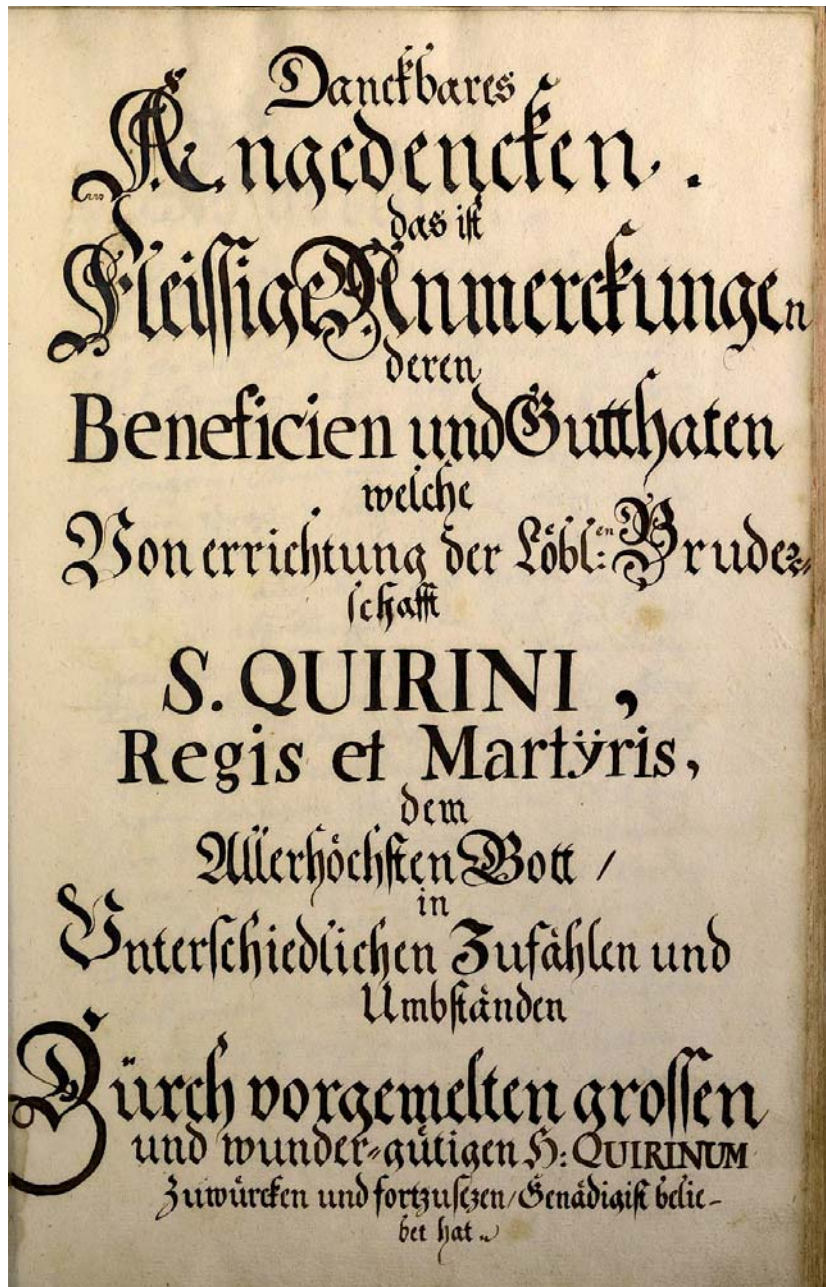 Danckbares
Angedencken.
das ist
Fleissige Anmerckungen
deren
Beneficien und Gutthaten
welche
Von errichtung der Löbl:en Bruder-
schafft
S. QUIRINI,
Regis et Martÿris,
dem
Allerhöchsten Gott /
in
Unterschiedlichen Zufählen und
Umbständen
Dürch vorgemelten grossen
und wunder-gütigen H: QUIRINUM
Zuwürcken und fortzusezen/Genädigist belie-
bet hat.